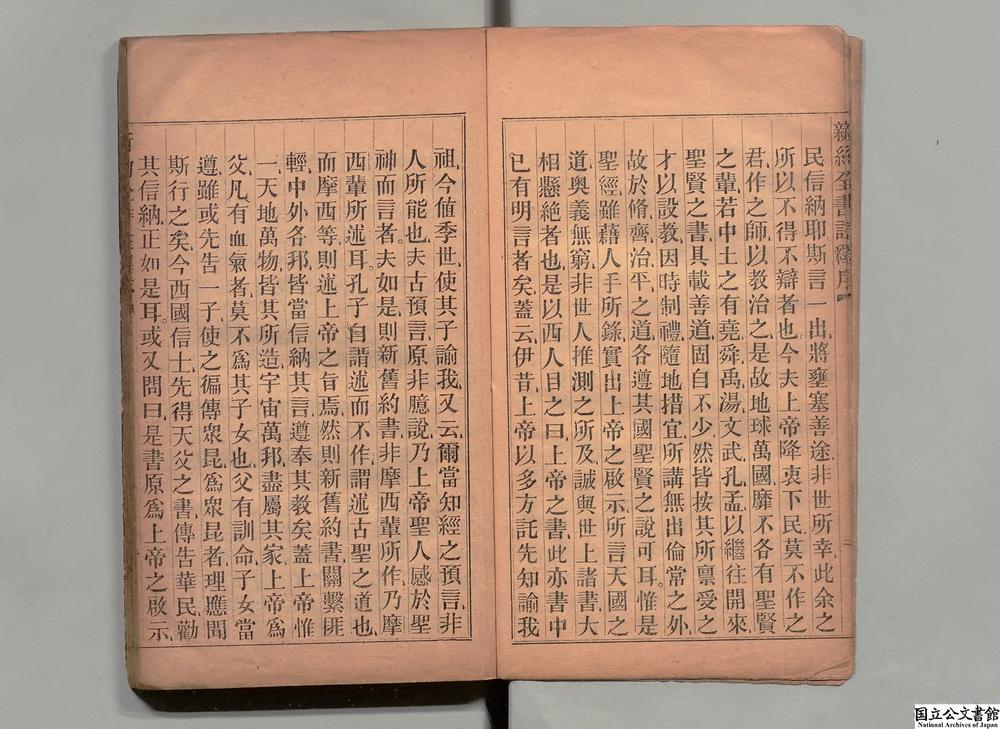 新約全書註釋序
民信納耶斯言一出將壅塞善途非世所幸此余之
所以不得不辯者也今夫上帝降衷下民莫不作之
君作之師以教治之是故地球萬國靡不各有聖賢
之輩若中土之有堯舜禹湯文武孔孟以繼往開來
聖賢之書具載善道固自不少然皆按其所禀受之
才以設教因時制禮隨地措宜所講無出倫常之外
故於脩齊治平之道各遵其國聖賢之說可耳惟是
聖經雖藉人手所錄實出上帝之啟示所言天國之
道奧義無窮非世人推測之所及誠與世上諸書大
相懸絕者也是以西人目之曰上帝之書此亦書中
已有明言者矣蓋云伊昔上帝以多方託先知諭我
祖今值季世使其子諭我又云爾當知經之預言非
人所能也夫古預言原非臆說乃上帝聖人感於聖
神而言者夫如是則新舊約書非摩西輩所作乃摩
西輩所述耳孔子自謂述而不作謂述古聖之道也
而摩西等則述上帝之旨焉然則新舊約書關繫匪
輕中外各邦皆當信納其言遵奉其教矣蓋上帝惟
一天地萬物皆其所造宇宙萬邦盡屬其家上帝為
父凡有血氣者莫不為其子女也父有訓命子女當
遵雖或先告一子使之徧傳眾昆為眾昆者理應聞
斯行之矣今西國信士先得天父之書傳告華民勸
其信納正如是耳或又問曰是書原為上帝之啟示
国立公文書館
National Archives of Japan